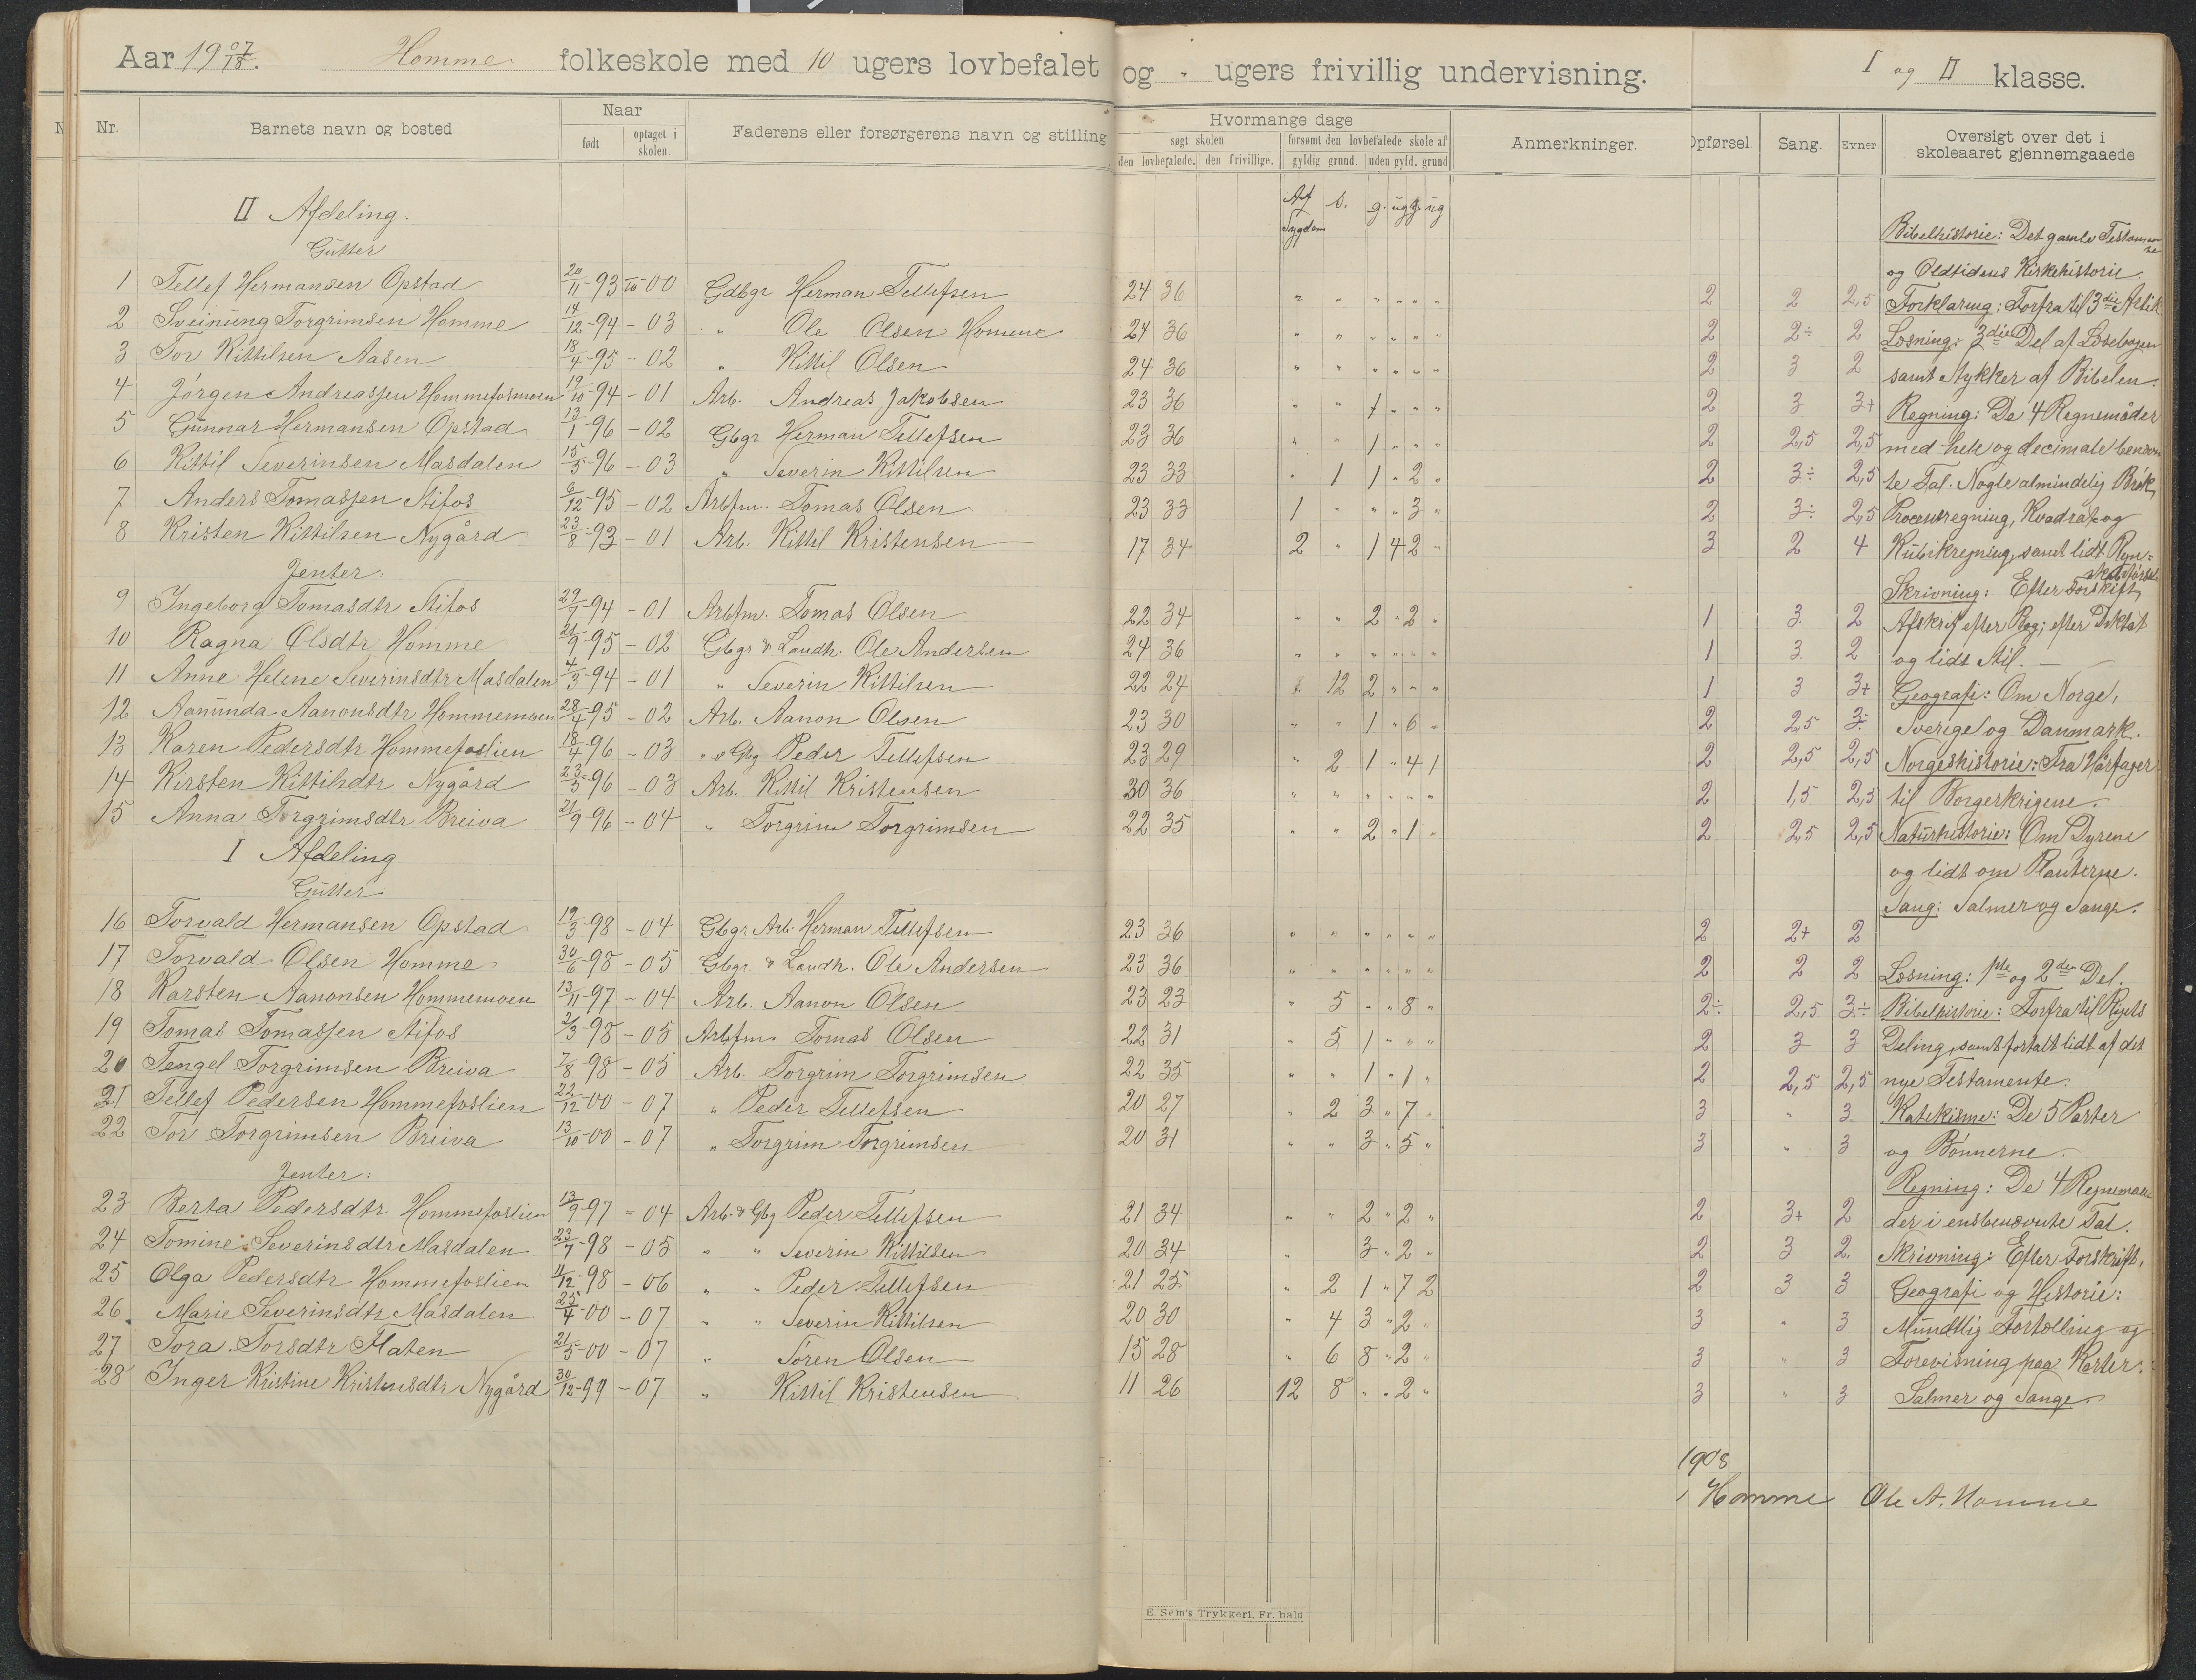 Aar 19 07/18. Homme folkeskole med 10 ugers lovbefalet og " ugers frivillig undervisning. I og II klasse.
Nr. Barnets navn og bosted Naar født optaget i skolen. Faderens eller forsørgerens navn og stilling Hvormange dage søgt skolen den lovbefalede. den frivillige. forsømt den lovbefalede skole af gyldig grund. uden gyld. grund Anmerkninger. Opførsel. Sang. Evner Oversigt over det i skoleaaret gjennemgaaede
II Afdeling. Af Sygdom s. g. ug g. ug
Gutter Bibelhistorie: Det gamle Testamente
og Oldtidens Kirkehistorie.
1 Tellef Hermansen Opstad 20/11-93 00 Gdbgr Herman Tellefsen 24 36 " " " " " " 2 2 2,5 Forklaring: Forfra til 3die Artik
2 Sveinung Torgrimsen Homme 14/12-94 - 03 " Ole Olsen Homme 24 36 " " " " " " 2 2÷ 2 Læsning: 3die Del af Læsebogen
3 Tor Kittilsen Aasen 18/4-95 - 02 " Kittil Olsen 24 36 " " " " " " 2 3 2 samt Stykker af Bibelen.
4 Jörgen Andreassen Hommefosmoen 19/10-94 - 01 Arb. Andreas Jakobsen 23 36 " " 1 " " " 2 3 3+ Regning: De 4 Regnemåder
5 Gunnar Hermansen Opstad 13/1-96 - 02 Gbgr Herman Tellefsen 23 36 " " 1 " " " 2 2,5 2,5 med hele og decimale benævn
6 Kittil Severinsen Masdalen 15/5-96 - 03 " Severin Kittilsen 23 33 " 1 1 " 2 " 2 3÷ 2,5 te Tal. Nogle almindelig Brök,
7 Anders Tomassen Stifos 6/12-95 - 02 Arbfm. Tomas Olsen 23 33 1 " " " 3 " 2 3÷ 2,5 Procentregning, Kvadrat og
8 Kristen Kittilsen Nygård 23/8-93 - 01 Arb. Kittil Kristensen 17 34 2 " 1 4 2 " 3 2 4 Kubikregning, samt lidt Regn-
Jenter: Skrivning: Efter Forskrift,
9 Ingeborg Tomasdtr Stifos 29/7-94 - 01 Arbfm. Tomas Olsen 22 34 " " 2 " 2 " 1 3 2 Afskrift efter Bog; efter Diktat
10 Ragna Olsdtr Homme 21/9-95 - 02 Gbgr & Landh. Ole Andersen 24 36 " " " " " " 1 3 2 og lidt Stil.
11 Anne Helene Severinsdtr Masdalen 4/3-94 - 01 " Severin Kittilsen 22 24 " 12 2 " " " 1 3 3+ Geografi: Om Norge,
12 Aanunda Aanonsdtr Hommemoen 28/4-95 - 02 Arb. Aanon Olsen 23 30 " " 1 " 6 " 2 2,5 3÷ Sverige og Danmark.
13 Karen Pedersdtr Hommefoslien 18/4-96 - 03 " & Gbg Peder Tellefsen 23 29 " 2 1 " 4 1 2 2,5 2,5 Norgeshistorie: Fra Hårfager
14 Kirsten Kittilsdtr Nygård 23/5-96 - 03 Arb. Kittil Kristensen 30 36 " " " " " " 2 1,5 2,5 til Borgerkrigene.
15 Anna Torgrimsdtr Breiva 21/9-96 - 04 " Torgrim Torgrimsen 22 35 " " 2 " 1 " 2 2,5 2,5 Naturhistorie: Om Dyrene
I Afdeling og lidt om Planterne.
Gutter. Sang: Salmer og Sange.
16 Torvald Hermansen Opstad 19/3-98 - 04 Gbgr Arb. Herman Tellefsen 23 36 " " " " " " 2 2+ 2
17 Torvald Olsen Homme 30/6-98 - 05 Gbgr. & Landh. Ole Andersen 23 36 " " " " " " 2 2 2 Læsning: 1ste og 2den Del.
18 Karsten Aanonsen Hommemoen 13/11-97 - 04 Arb. Aanon Olsen 23 23 " 5 " " 8 " 2÷ 2,5 3÷ Bibelhistorie: Forfra til Rigets
19 Tomas Tomassen Stifos 2/3-98 - 05 Arbfm. Tomas Olsen 22 31 " 5 1 " " " 2 3 3 Deling, samt fortalt lidt af det
20 Tengel Torgrimsen Breiva 7/8-98 - 05 Arb. Torgrim Torgrimsen 22 35 " " 1 " 1 " 2 2,5 2,5 nye Testamente.
21 Tellef Pedersen Hommefoslien 22/12-00 - 07 " Peder Tellefsen 20 27 " 2 3 " 7 " 3 " 3. Katekisme: De 5 Parter
22 Tor Torgrimsen Breiva 13/10-00 - 07 " Torgrim Torgrimsen 20 31 " " 3 " 5 " 3 " 3 og Bönnerne.
Jenter: Regning: De 4 Regnemaa
23 Berta Pedersdtr Hommefoslien 13/9-97 - 04 Arb. & Gbg Peder Tellefsen 21 34 " " 2 " 2 " 2 3+ 2 der i ensbenævnte Tal.
24 Tomine Severinsdtr Masdalen 23/7-98 - 05 " " Severin Kittilsen 20 34 " 3 " 2 " 2 3 2. Skrivning: Efter Forskrift,
25 Olga Pedersdtr Hommefoslien 11/12-98 - 06 " " Peder Tellefsen 21 25 " 2 1 " 7 2 2 3 3 Geografi og Historie:
26. Marie Severinsdtr Masdalen 25/4-00 - 07 " " Severin Kittilsen 20 30 " 4 3 " 2 " 3 " 3 Mundtlig Fortælling og
27 Tora Torsdtr Flaten 21/5-00 - 07 " Tören Olsen 15 28 " 6 8 " 2 " 3 " 3 Forevisning paa Karter.
28 Inger Kristine Kristensdtr Nygård 30/12-99 - 07 " Kittil Kristensen 11 26 12 8 " " 2 " 3 " 3 Salmer og Sange.
1908
Homme Ole A. Homme
E. Sem's Trykkeri, Fr. hald